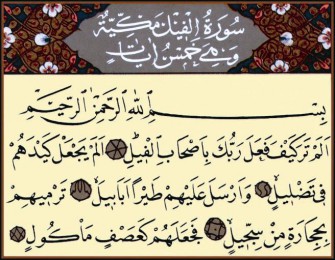 سُورَةُ الْفِيلِ مَكِّيَّةٌ
وَهِيَ خَمْسُ اٰيَاتٍ
بِسْمِ اللّٰهِ الرَّحْمٰنِ الرَّحِيمِ
اَلَمْ تَرَ كَيْفَ فَعَلَ رَبُّكَ بِاَصْحَابِ الْفِيلِ اَلَمْ يَجْعَلْ كَيْدَهُمْ
فِي تَضْلِيلٍ وَاَرْسَلَ عَلَيْهِمْ طَيْرًا اَبَابِيلَ تَرْمِيهِمْ
بِحِجَارَةٍ مِنْ سِجِّيلٍ فَجَعَلَهُمْ كَعَصْفٍ مَأْكُولٍ